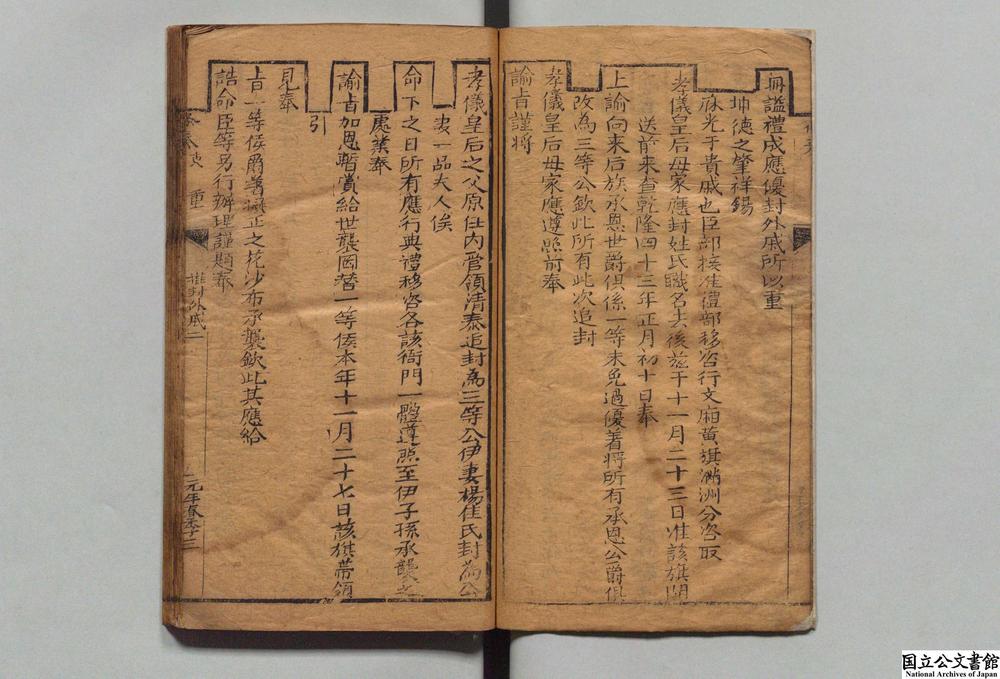 冊謚禮成應優封外戚所以重
坤德之肇祥錫
庥光于貴戚也臣部接准禮部移咨行文廂黃旗滿洲分咨取
孝儀皇后母家應封姓氏職名去後茲于十一月二十三日准該旗開
送前來查乾隆四十三年正月初十日奉
上諭向來后族承恩世爵俱係一等未免過優著將所有承恩公爵俱
改為三等公欽此所有此次追封
孝儀皇后母家應遵照前奉
諭旨謹將
孝儀皇后之父原任內管領清泰追封為三等公伊妻楊佳氏封為公
妻一品夫人俟
命下之日所有應行典禮移咨各該衙門一體遵照至伊子孫承襲之
處業奉
諭旨加恩暫賞給世襲罔替一等侯本年十一月二十七日該旗帶領
引
見奉
旨一等侯爵著擬正之花沙布承襲欽此其應給
誥命臣等另行辦理謹題奉
重
推封外戚二
元年春季十三
国立公文書館
National Archives of Japan